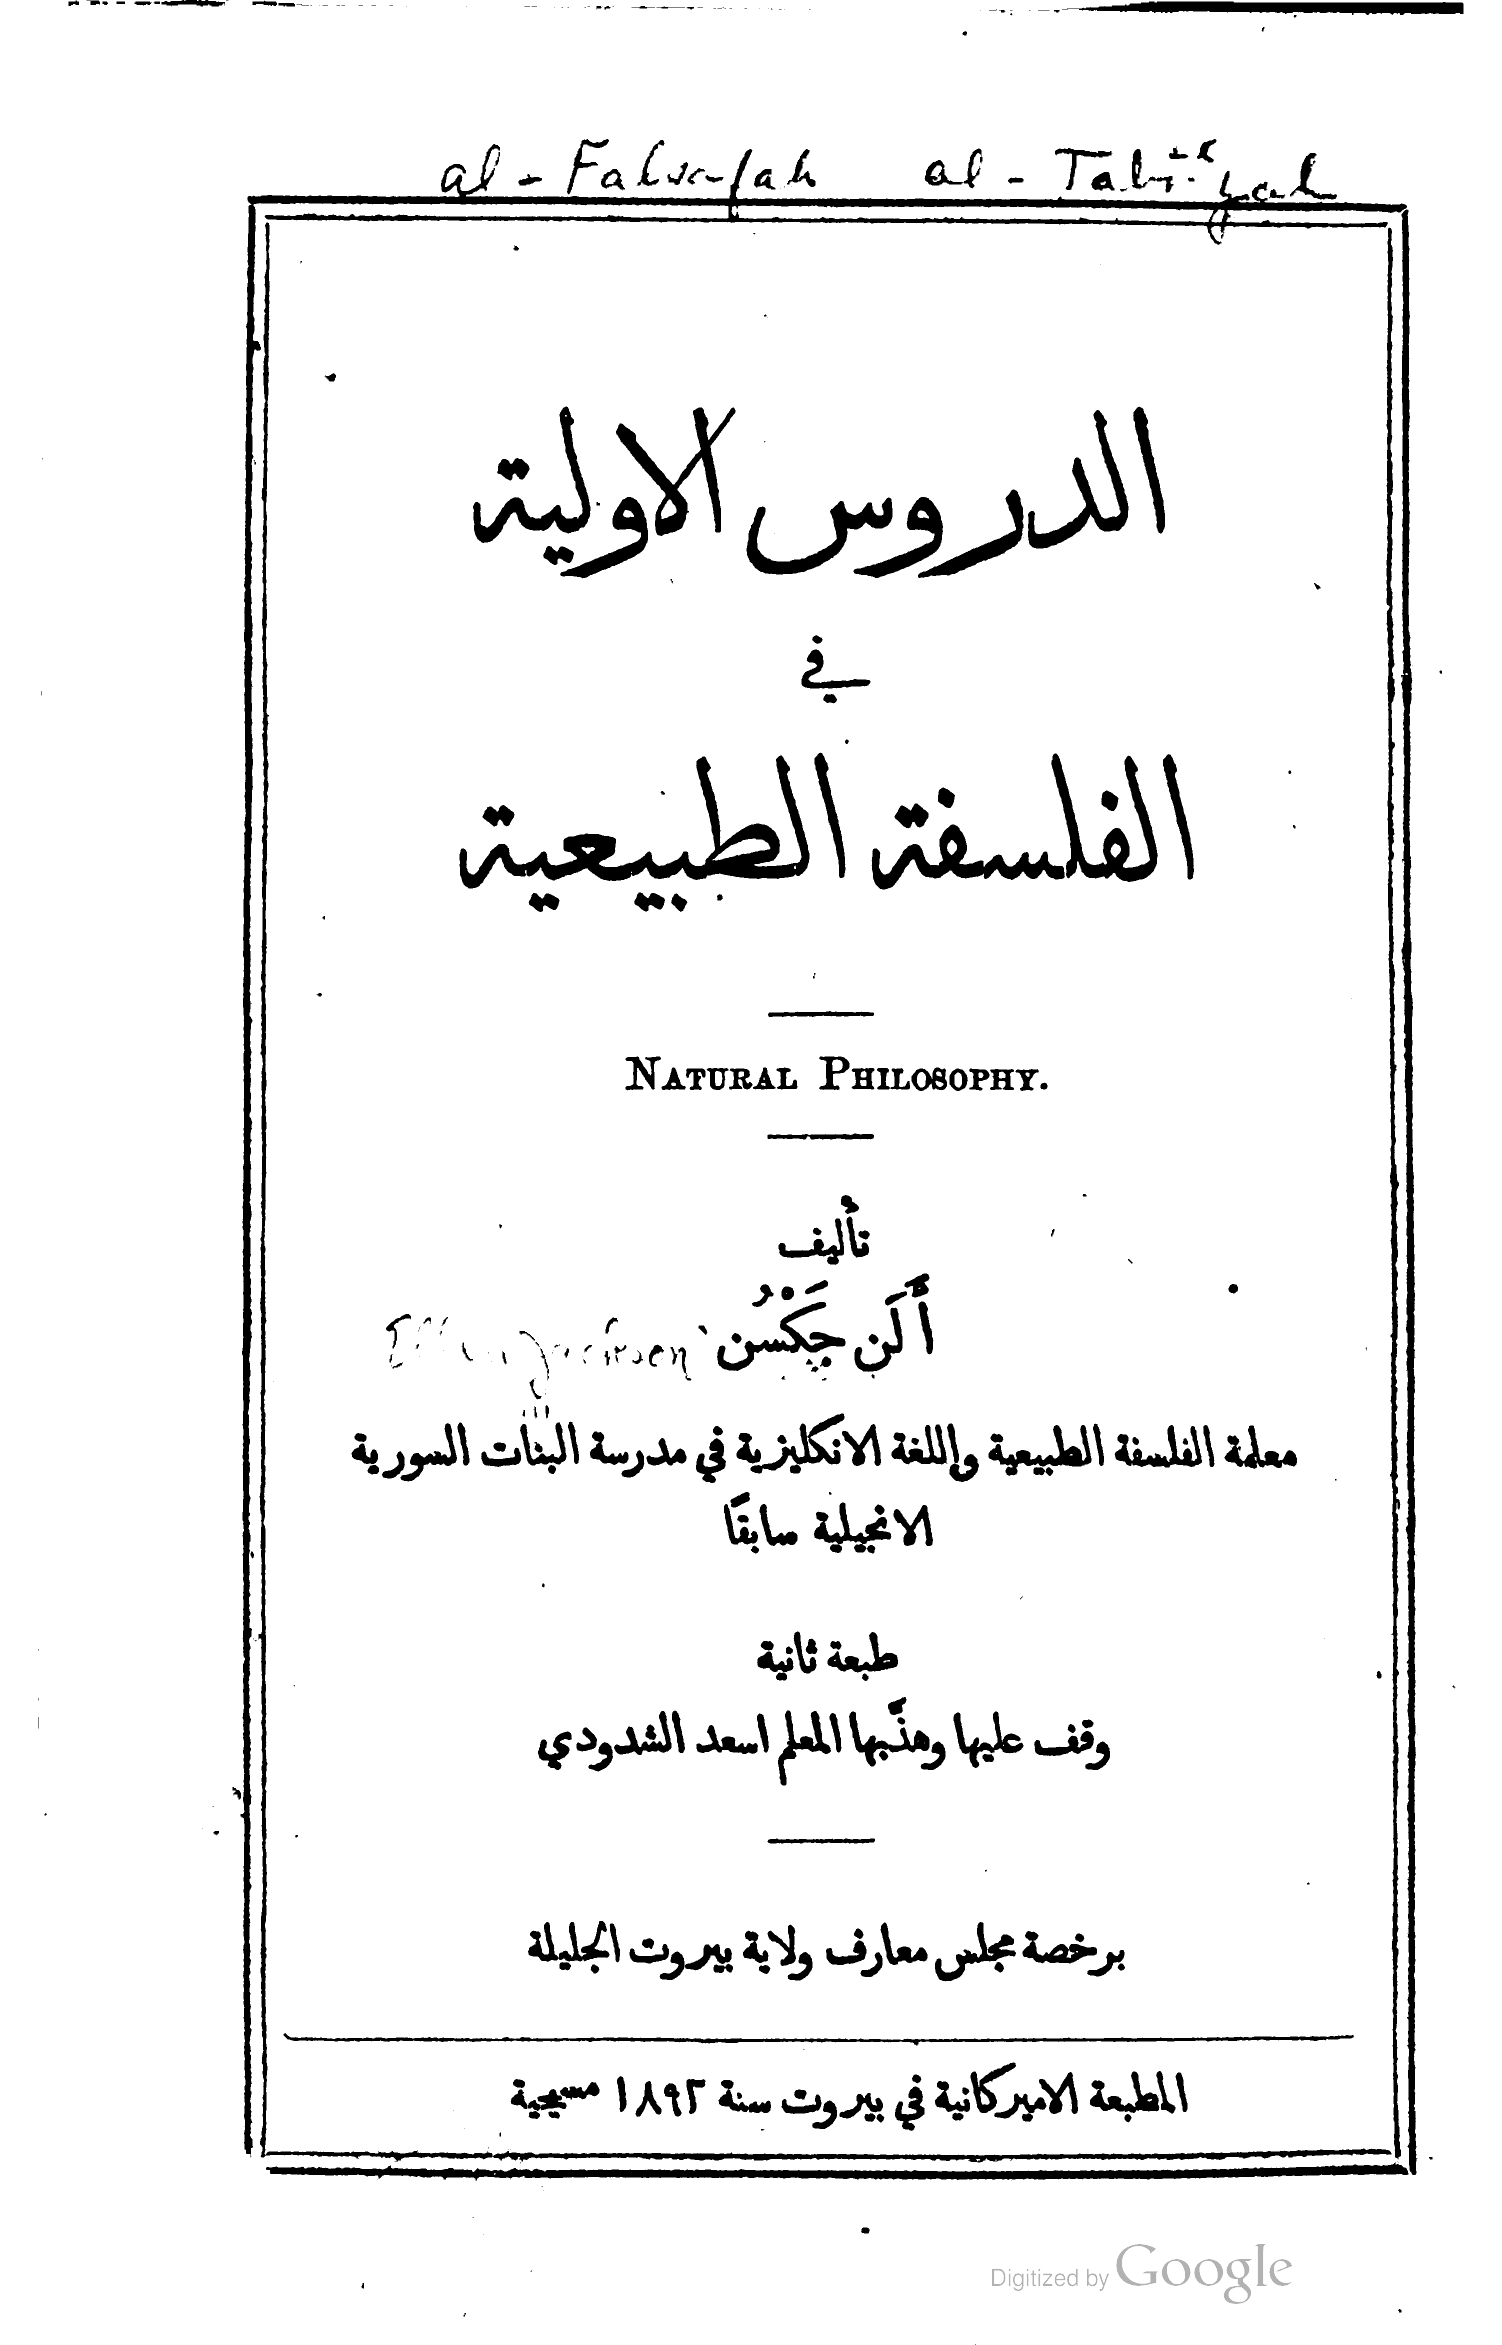 al-Falsafah al-Tabi'iyah
الدروس الاولية
في
الفلسفة الطبيعية
NATURAL PHILOSOPHY.
تأليف
أَلَن جَكْسُن Ellen Jackson
معلمة الفلسفة الطبيعية واللغة الانكليزية في مدرسة البنات السورية
الانجيلية سابقًا
طبعة ثانية
وقف عليها وهذَّبها المعلم اسعد الشدودي
برخصة مجلس معارف ولاية بيروت الجليلة
المطبعة الاميركانية في بيروت سنة ١٨٩٢ مسيحية
Digitized by Google